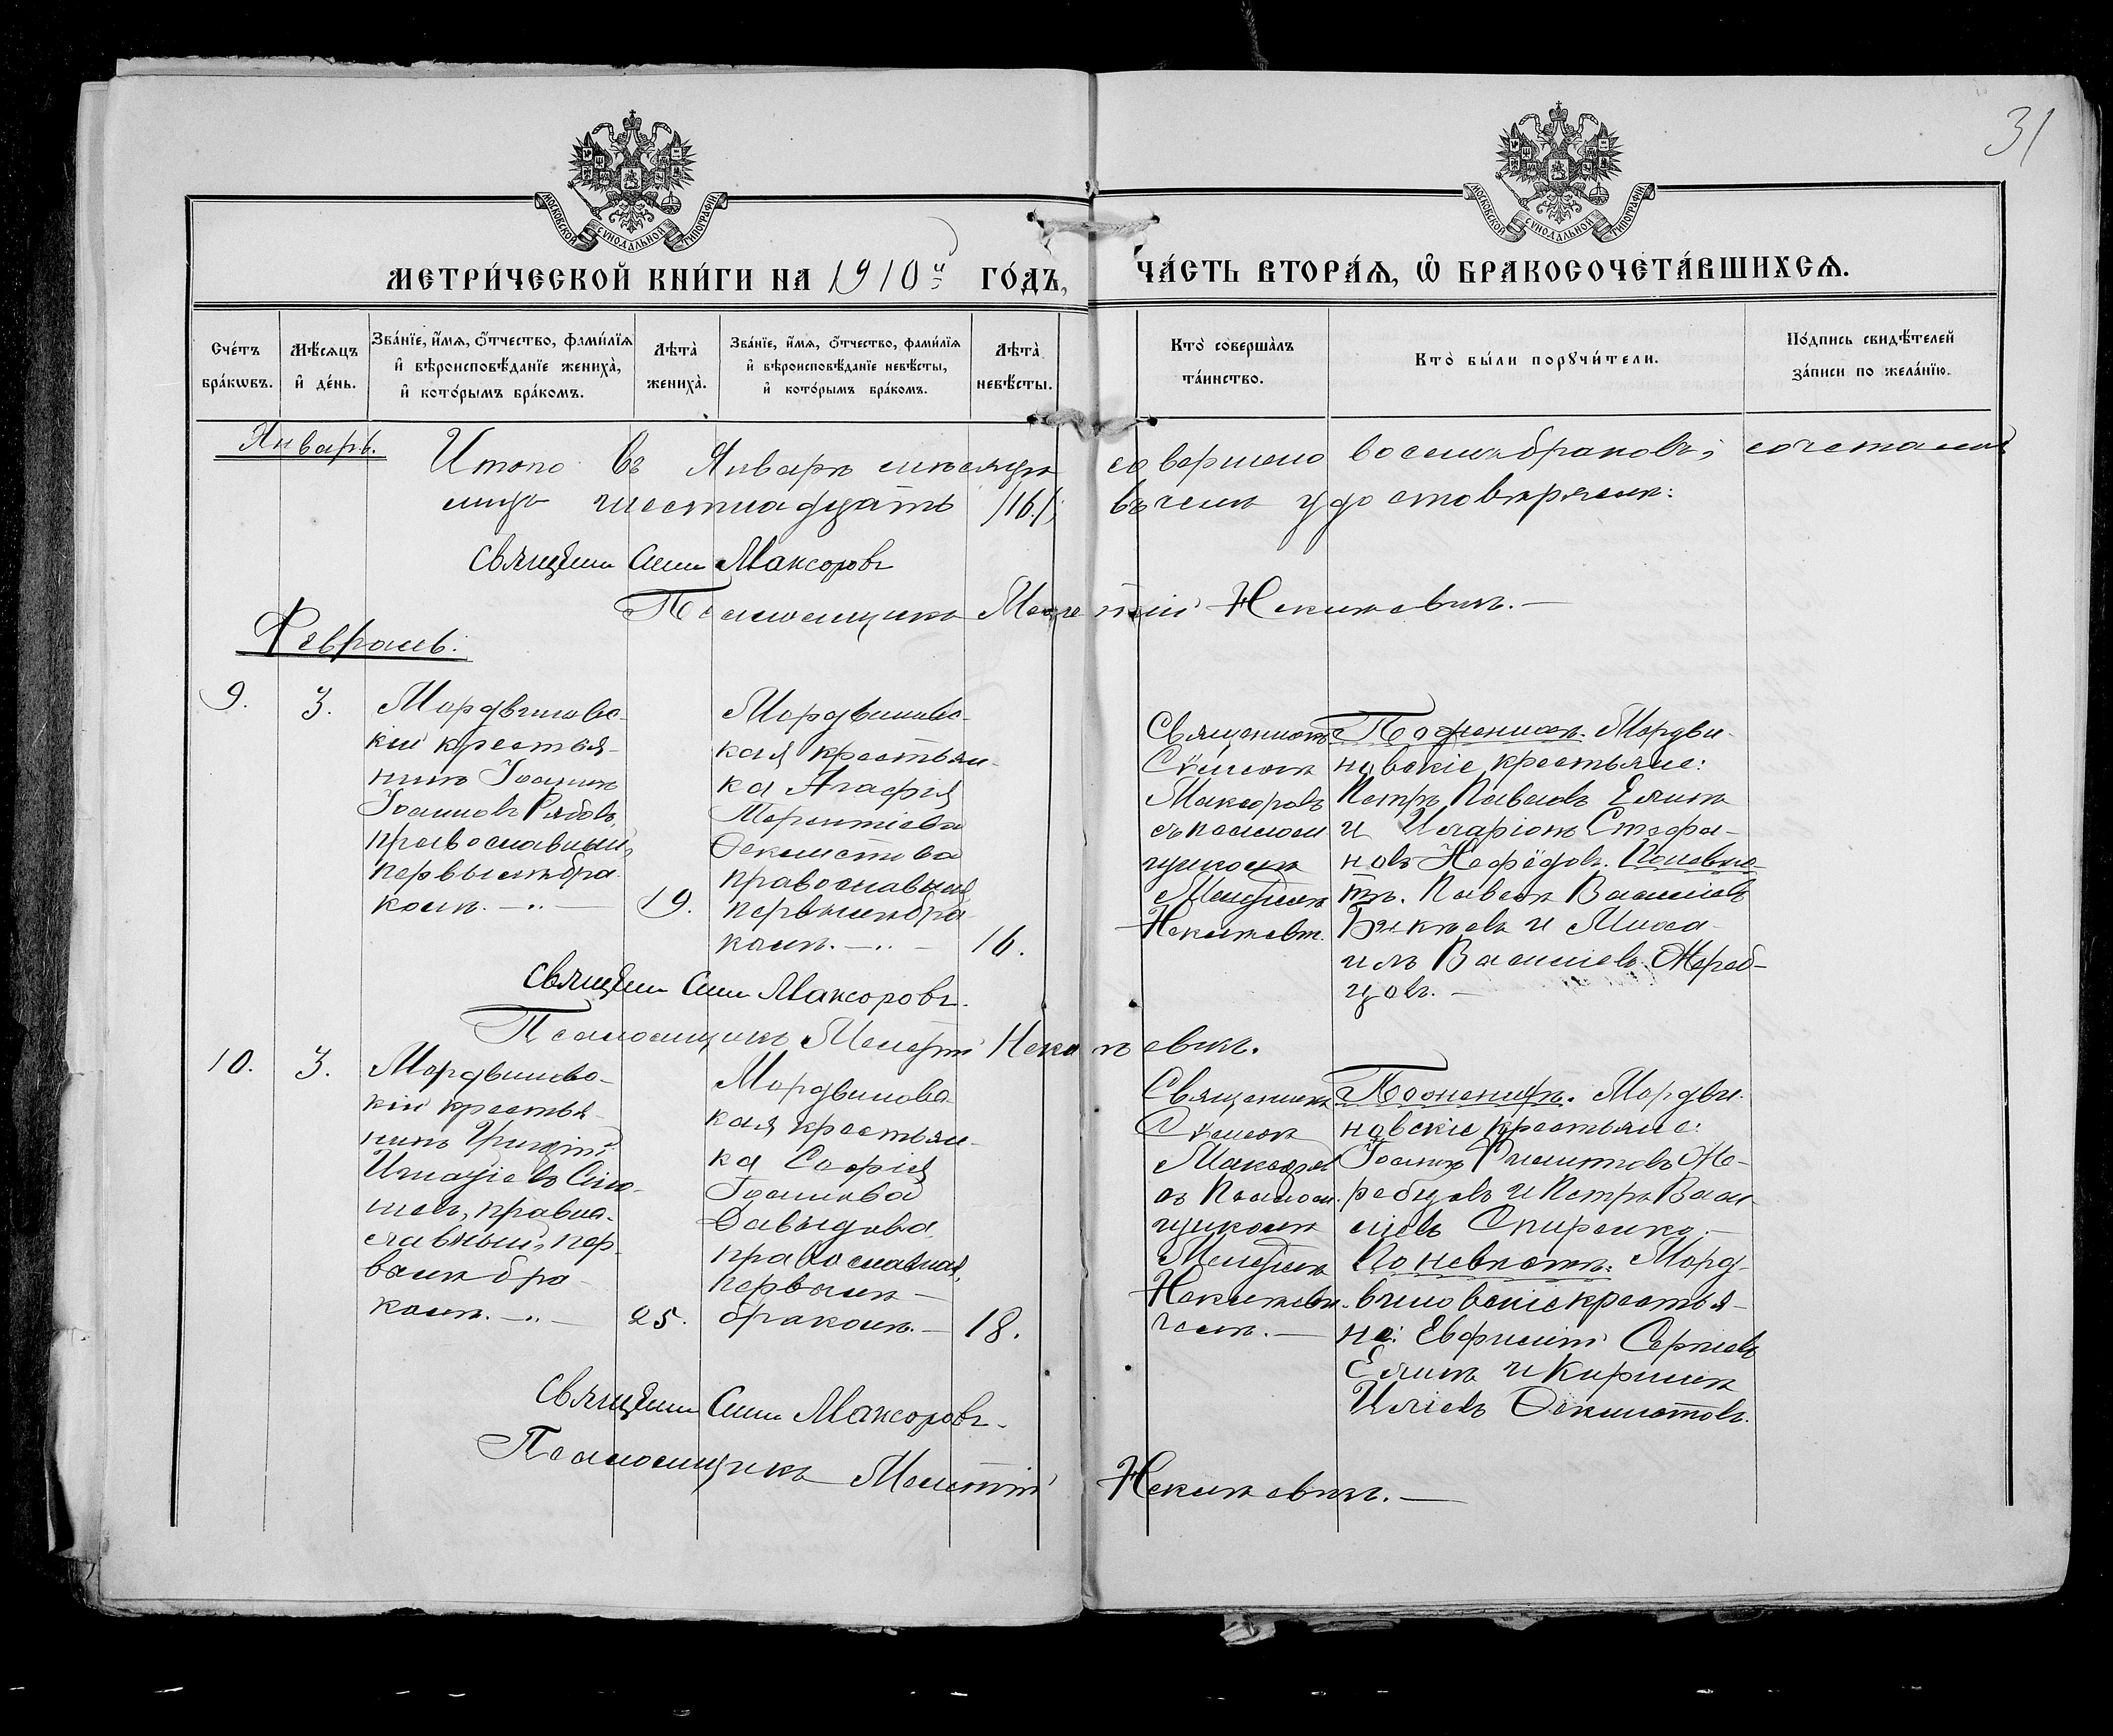 31
МОСКОВСКОЙ СѴНОДАЛЬНОЙ ТИПОГРАФІИ
МОСКОВСКОЙ СѴНОДАЛЬНОЙ ТИПОГРАФІИ
МЕТРИ́ЧЕСКОЙ КНИ́ГИ НА 1910й ГО́ДЪ, ЧА́СТЬ ВТОРА́Я, Ѽ БРАКОСОЧЕТА́ВШИХСЯ.
Сче́тъ бра́кѡвъ.
Мѣ́сяцъ и҆ де́нь.
Зва́нїе, и҆́мя, ѻ҆́тчество, фами́лїя и҆ вѣроисповѣ́данїе жениха̀, и҆ кото́рымъ бра́комъ.
Лѣта̀ жениха̀.
Зва́нїе, и҆́мя, ѻ҆́тчество, фами́лїя и҆ вѣроисповѣ́данїе невѣ́сты, и҆ кото́рымъ бра́комъ.
Лѣта̀ невѣ́сты.
Кто̀ соверша̀лъ та́инство.
Кто̀ бы́ли порꙋчи́тели.
По́дпись свидѣ́телей за́писи по жела́нїю.
Январь.
Итого въ Январѣ мѣсяцѣ совершено восемь браковъ; сочетались
лицъ шестнадцать /16/; въ чемъ удостовѣряемъ:
Священ Сим Максоровъ
Псаломщикъ Мелетій Некитевич. —
Февраль.
9.
3.
Мордвиновс-
кій крестья-
нинъ Іоаннъ
Іоанновъ Рябовъ,
православный,
первымъ бра-
комъ. — „ —
19.
Мордвиновс-
кая крестьян-
ка Агафія
Терентіева
Феклистова
православная
первымъ бра-
комъ. — „ —
16.
Священникъ
Сѵмеонъ
Максоровъ
съ псалом
щикомъ
Мелетіем
По женихѣ. Мордви-
новскіе крестьяне:
Петръ Павловъ Елинъ
и Иларіонъ Стефа-
новъ Нефёдовъ. По невѣс-
тѣ. Павелъ Васильевъ
и Миха-
илъ Васильевъ Жереб-
цовъ. —
Священ Сим Максоровъ.
Псаломщикъ Мелетій
10.
3.
Мордвиновс-
кій крестья-
нинъ Григорій
Игнатіевъ
православ-
славный, пер-
вымъ бра-
комъ. — „ —
25.
Мордвиновс
кая крестьян-
ка Софія
Іоаннова
Давыдова,
православная,
первымъ
бракомъ. —
18.
Священникъ
Сѵмеонъ
Максоров
съ Псалом
щикомъ
Мелетіем
По женихѣ. Мордви-
новскіе крестьяне:
Іоаннъ Филипповъ Же-
ребцовъ и Петръ Васи
ліевъ Спиренко. —
По невѣстѣ: Морд-
виновскіе крестья-
не: Евфимій Сергіевъ
Елинъ и Кириллъ
Иліевъ Феклистовъ.
Священ Сим Максоровъ.
Псаломщикъ Мелетій